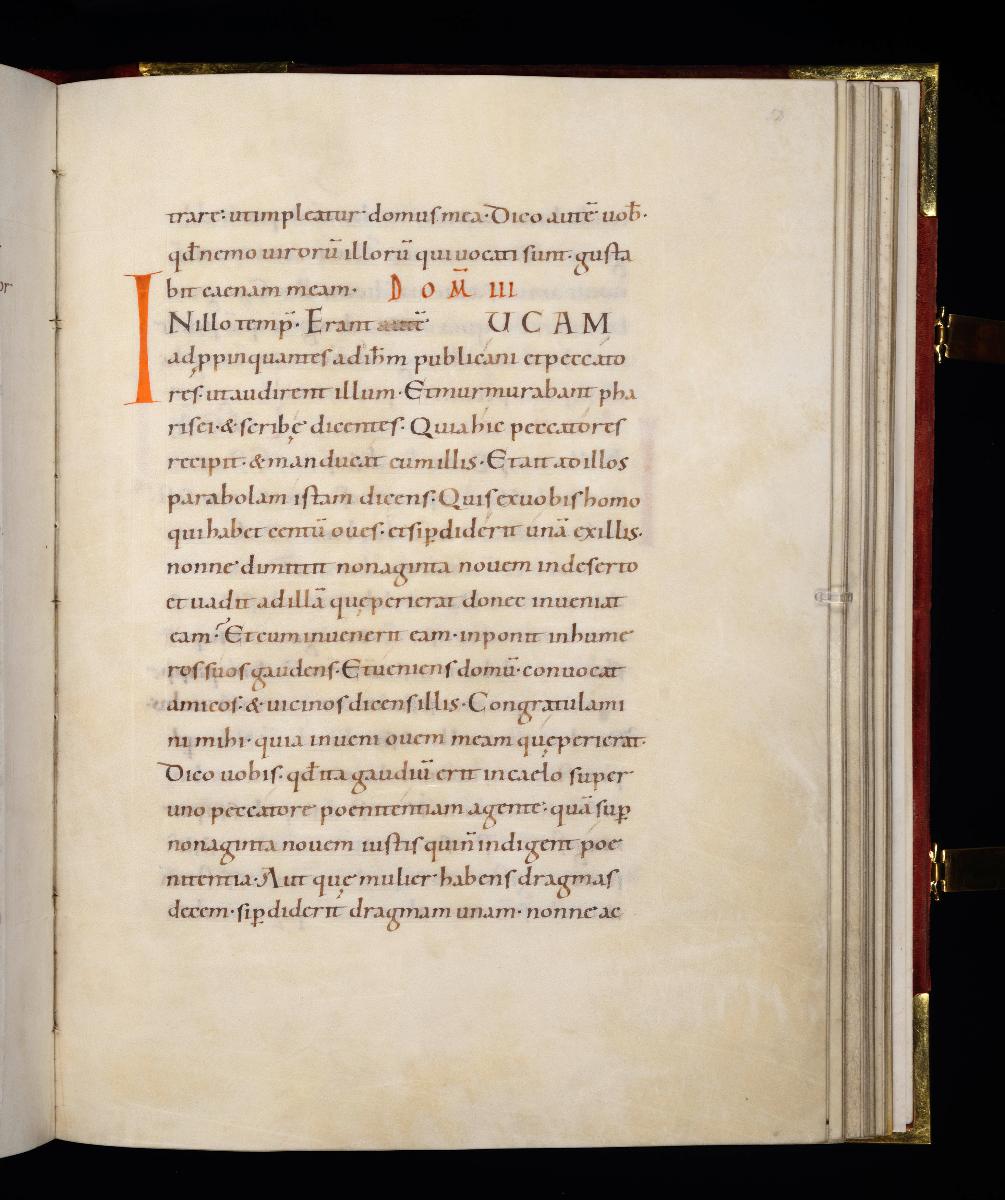 trare. ut impleatur domus mea. Dico autē uob̄.
qd̄ nemo uirorū illorū qui uocati sunt. gusta
bit caenam meam. DOM̄ III
INillo temp̄. Erant autē UCAM
adpropinquantes ad ih̄m publicani et peccato
res. ut audirent illum. Et murmurabant pha
risei. & scribę dicentes. Quia hic peccatores
recipit. & manducat cum illis. Et ait ad illos
parabolam istam dicens. Quis ex uobis homo
qui habet centū oues. et si ꝑdiderit unā ex illis.
nonne dimittit nonaginta nouem in deserto
et uadit ad illā quę perierat donec inueniat
eam? Et cum inuenerit eam. inponit in hume
ros suos gaudens. Et ueniens domū. conuocat
amicos. & uicinos dicens illis. Congratulami
ni mihi. quia inueni ouem meam quę perierat.
Dico uobis. qd̄ ita gaudiū erit in caelo super
uno peccatore poenitentiam agente. quā suꝑ
nonaginta nouem iustis qui n̄ indigent poe
nitentia. Aut quę mulier habens dragmas
decem. si ꝑdiderit dragmam unam. nonne ac